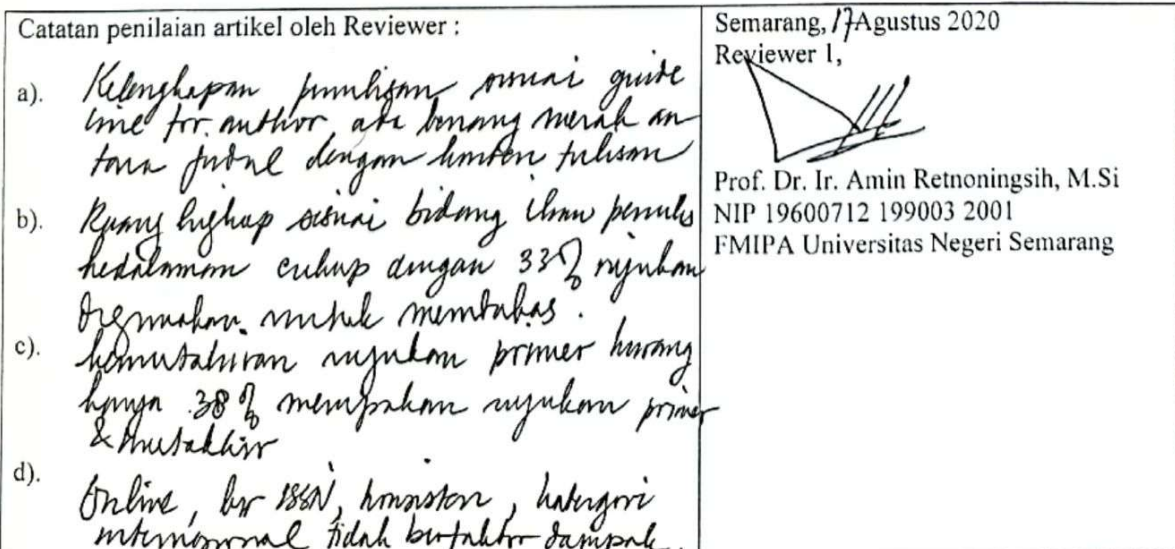 Catatan penilaian artikel oleh Reviewer :
a). Kelengkapan penulisan sesuai guide
line for author, ada benang merah an
tara judul dengan konten tulisan
b). Ruang lingkup sesuai bidang ilmu penulis
kedalaman cukup dengan 33% rujukan
digunakan untuk membahas.
c). kemutahiran rujukan primer kurang
hanya 38% merupakan rujukan primer
& mutakhir
d). Online, ber ISSN, konsisten, kategori
internasional tidak berfaktor dampak.
Semarang, 17 Agustus 2020
Reviewer 1,
Prof. Dr. Ir. Amin Retnoningsih, M.Si
NIP 19600712 199003 2001
FMIPA Universitas Negeri Semarang